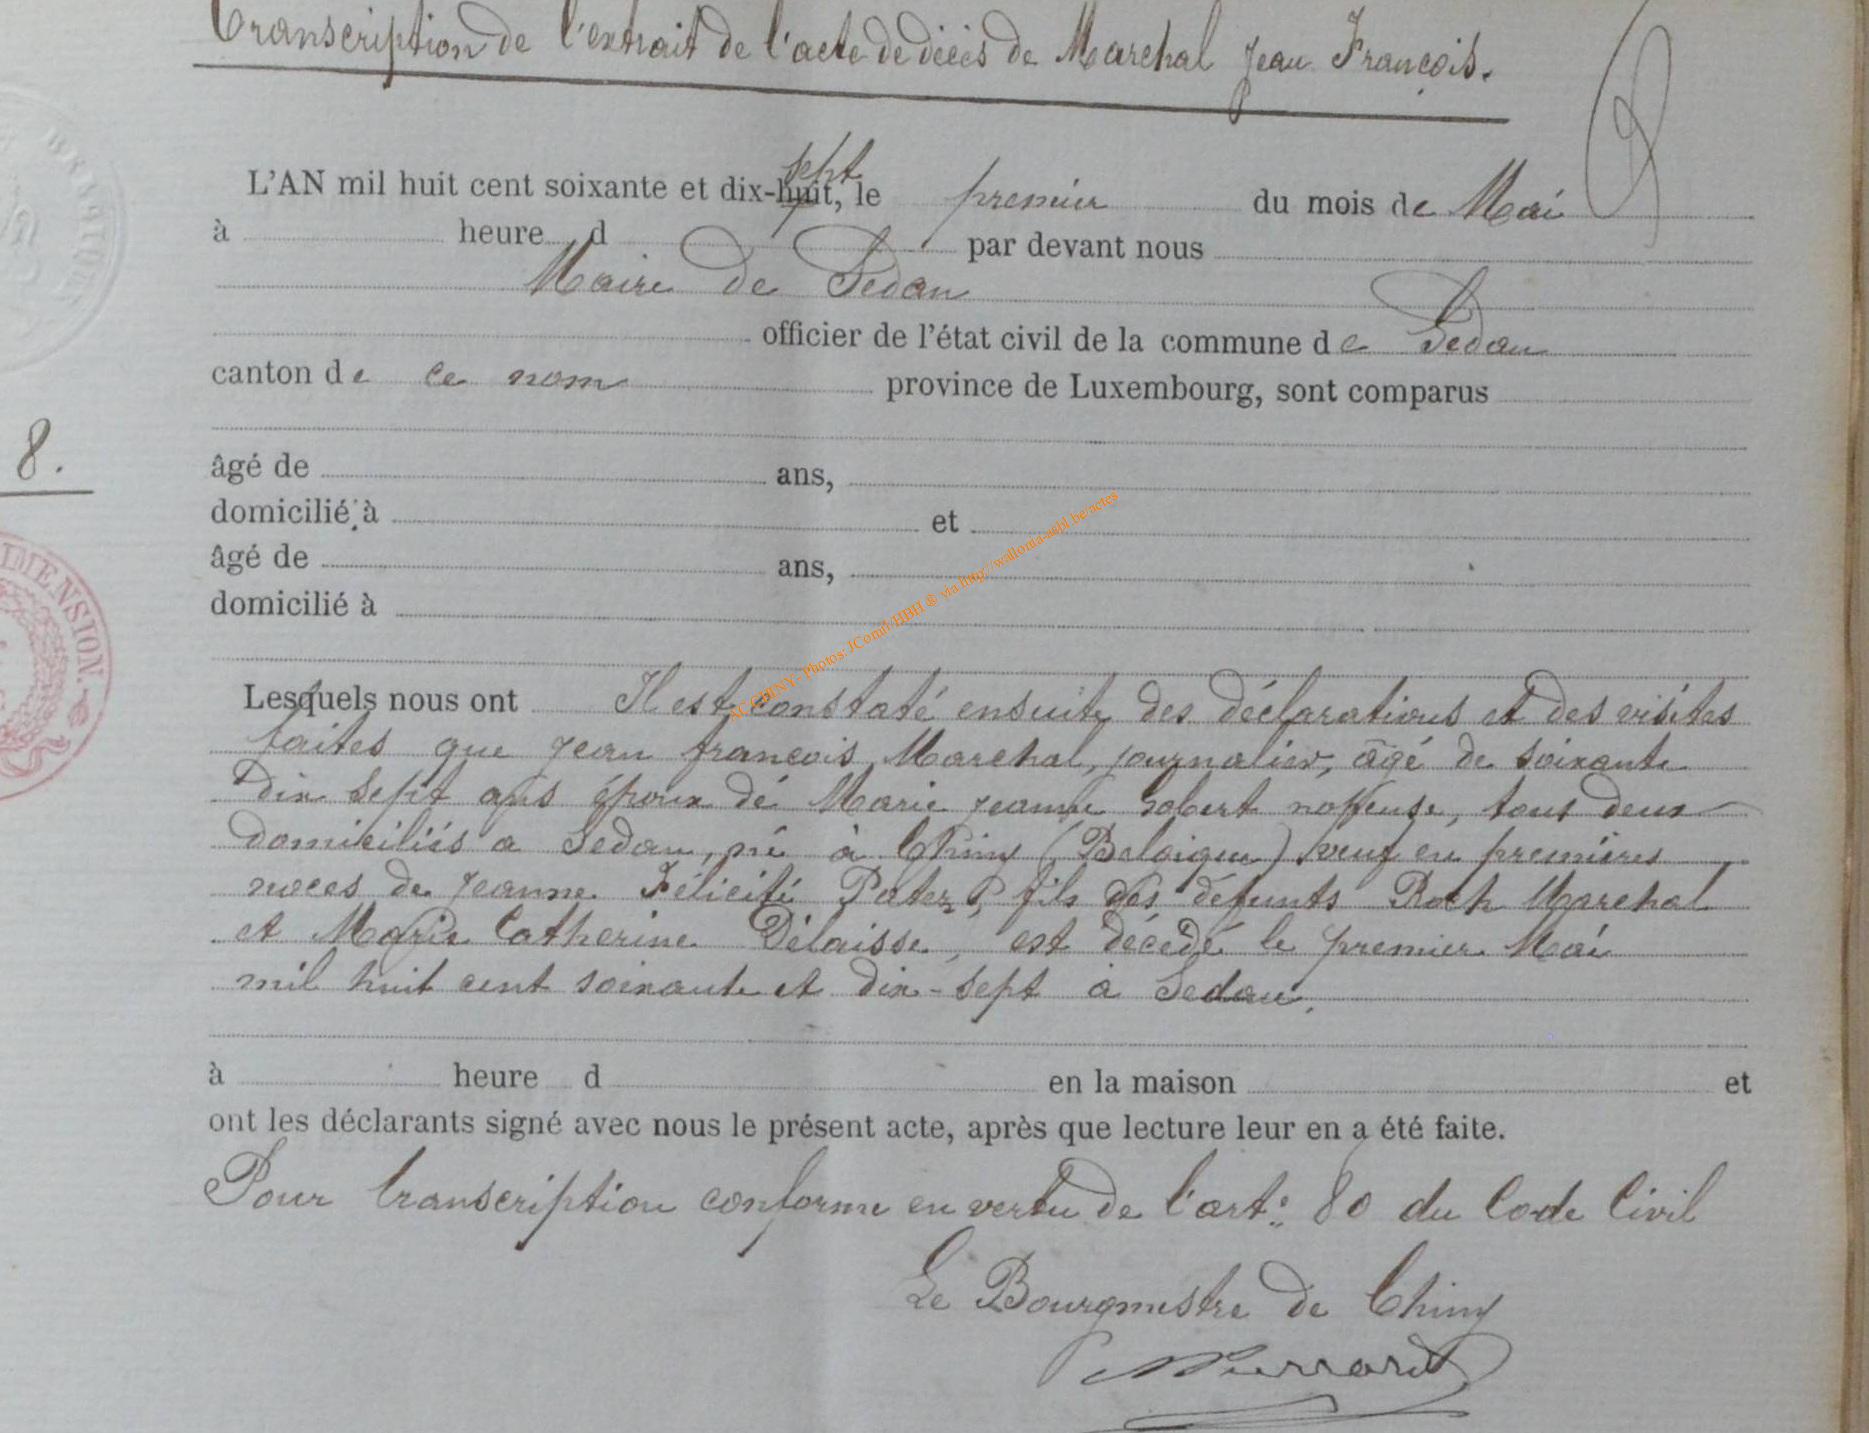 Transcription de l'extrait de l'acte de décès de Marchal Jean François.
L'AN mil huit cent soixante et dix-huit, sept le premier du mois de Mai
à heure d par devant nous
Maire de Sedan
officier de l'état civil de la commune de Sedan
canton de ce nom province de Luxembourg, sont comparus
8.
âgé de ans,
domicilié à et
âgé de ans,
domicilié à
DIMENSION.
Lesquels nous ont Il est constaté ensuite des déclarations et des visites
faites que Jean françois Marchal, journalier, âgé de soixante
dix sept ans époux de Marie Jeanne Gobert noffeuse, tous deux
domiciliés a Sedan, né à Chiny (Belgique) veuf en premières
noces de Jeanne Félicité, fils des défunts Roch Marchal
et Marie Catherine Délaisse, est décédé le premier Mai
mil huit cent soixante et dix-sept à Sedan.
à heure d en la maison et
ont les déclarants signé avec nous le présent acte, après que lecture leur en a été faite.
Pour transcription conforme en vertu de l'art. 80 du Code Civil
Le Bourgmestre de Chiny
ACCHINY- Photos: JComif-HBH ® via http://wallonia-asbl.be/actes